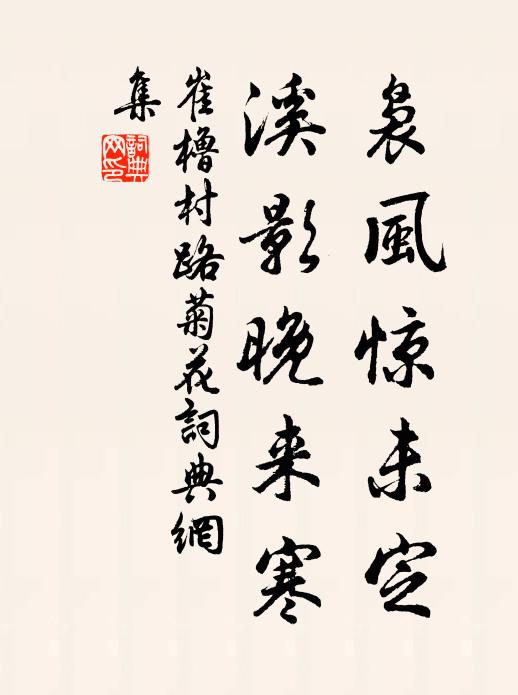 袅風惊未定
溪影晚来寒
崔櫓村路菊花詞典網
集
詞典
网印